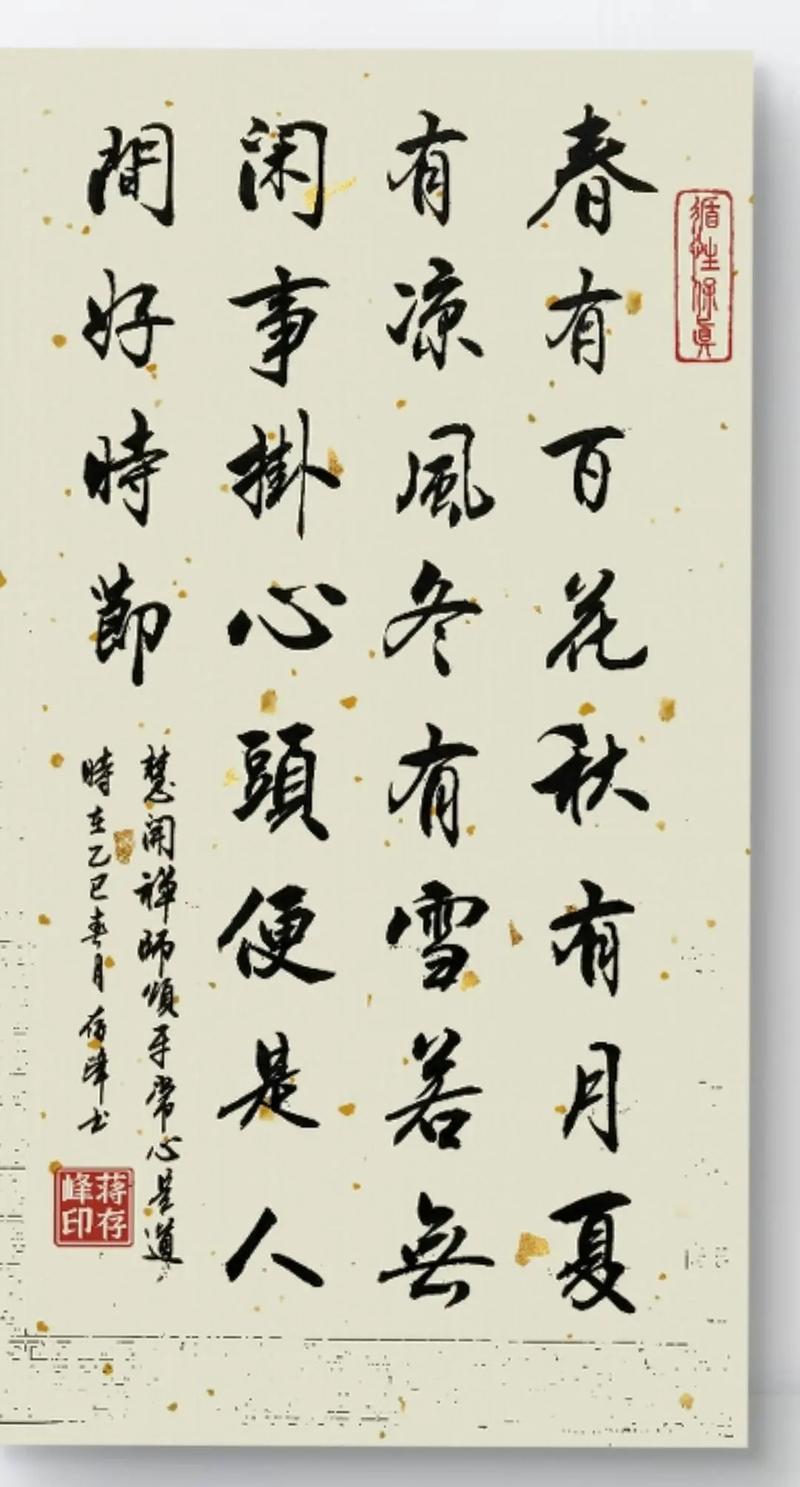 循性保真
春有百花秋有月夏
有凉風冬有雪若無
闲事掛心頭便是人
間好時節
慧開禅師頌平常心是道
時在乙巳春月存峰书
蒋存峰印